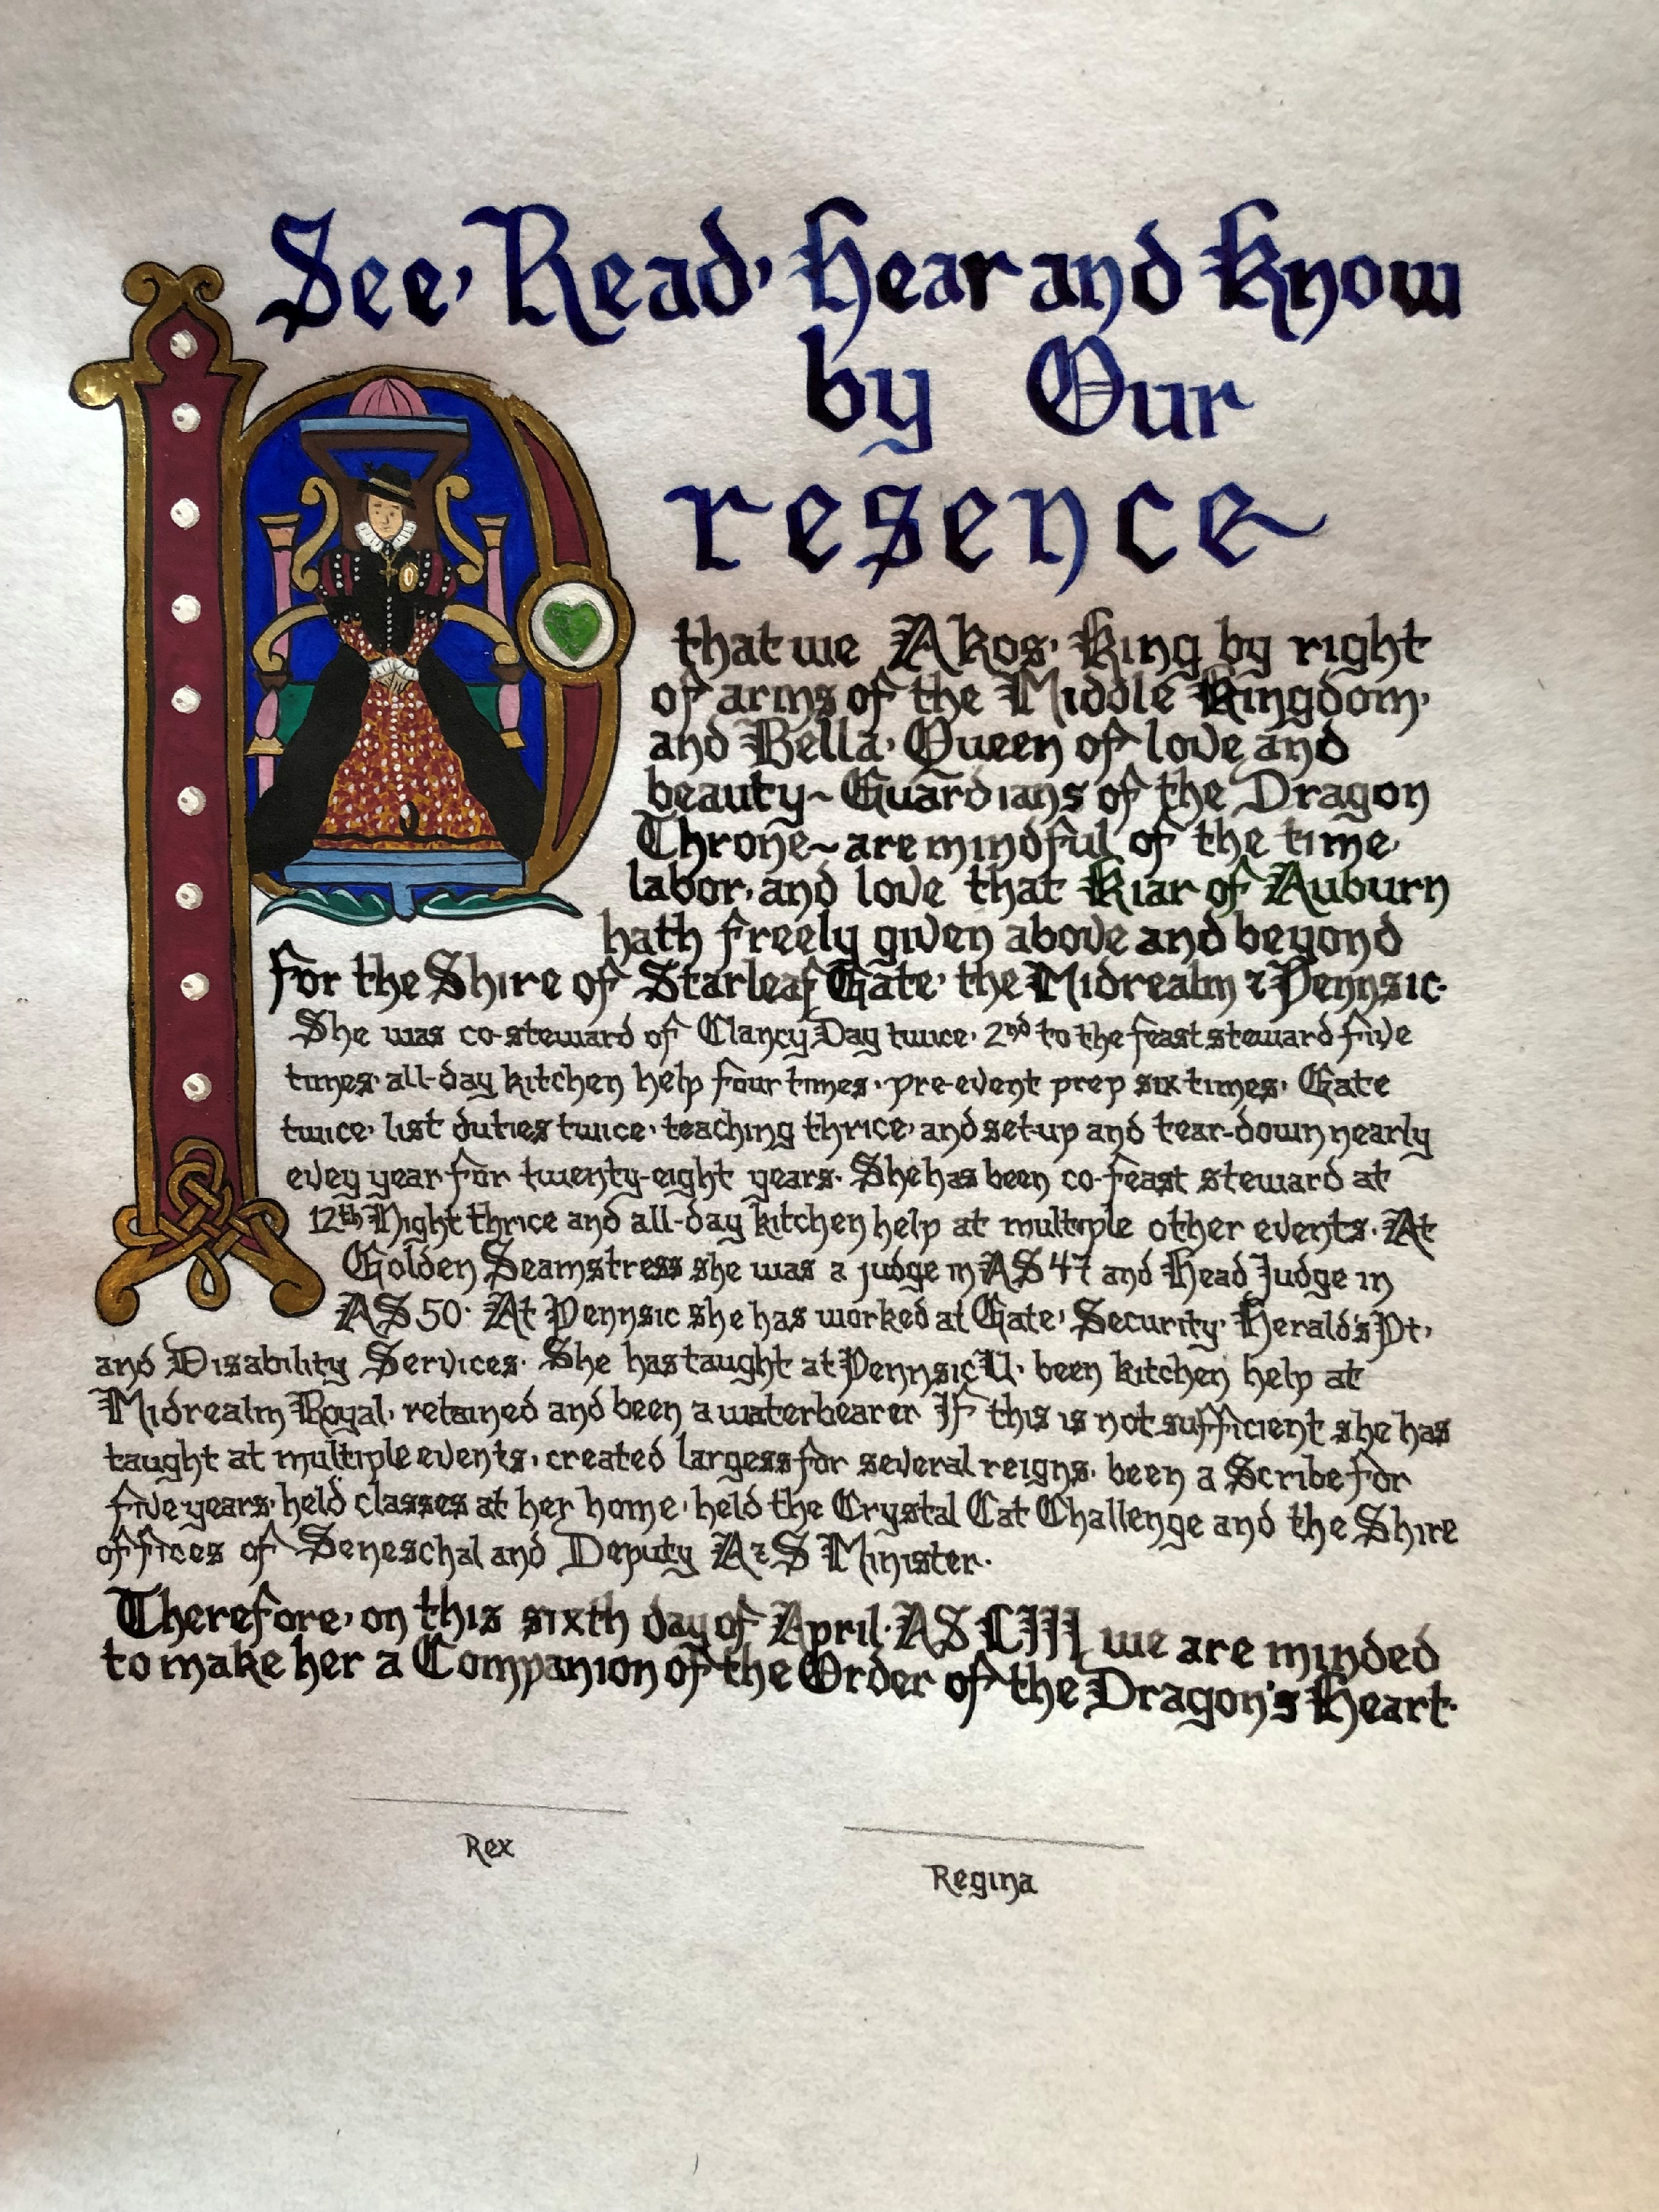 See, Read, Hear and Know
by Our
Presence
that we Akos, King by right
of arms of the Middle Kingdom,
and Bella, Queen of love and
beauty~Guardians of the Dragon
Throne~are mindful of the time,
labor, and love that Kiar of Auburn
hath freely given above and beyond
for the Shire of Starleaf Gate, the Midrealm & Pennsic.
She was co-steward of Clancy Day twice, 2nd to the feast steward five
times, all-day kitchen help four times, pre-event prep six times, Gate
twice, list duties twice, teaching thrice, and set-up and tear-down nearly
evey year for twenty-eight years. She has been co-feast steward at
12th Night thrice and all-day kitchen help at multiple other events. At
Golden Seamstress she was a judge in AS 47 and Head Judge in
AS 50. At Pennsic she has worked at Gate, Security, Herald's Pt,
and Disability Services. She has taught at Pennsic U, been kitchen help at
Midrealm Royal, retained and been a waterbearer If this is not sufficient she has
taught at multiple events, created largess for several reigns, been a Scribe for
five years, held classes at her home, held the Crystal Cat Challenge and the Shire
offices of Seneschal and Deputy A&S Minister.
Therefore, on this sixth day of April, AS LIII, we are minded
to make her a Companion of the Order of the Dragon's Heart.
Rex
Regina